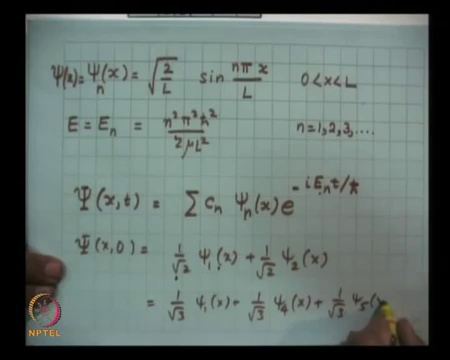 ψ(x) = ψₙ(x) = √(2/L) sin nπx/L 0 < x < L
E = Eₙ = n²π²ħ²/2μL² n = 1, 2, 3, ....
Ψ(x, t) = Σ cₙ ψₙ(x) e^(-iEₙt/ħ)
Ψ(x, 0) = 1/√2 ψ₁(x) + 1/√2 ψ₂(x)
= 1/√3 ψ₁(x) + 1/√3 ψ₄(x) + 1/√3 ψ₅(x
NPTEL